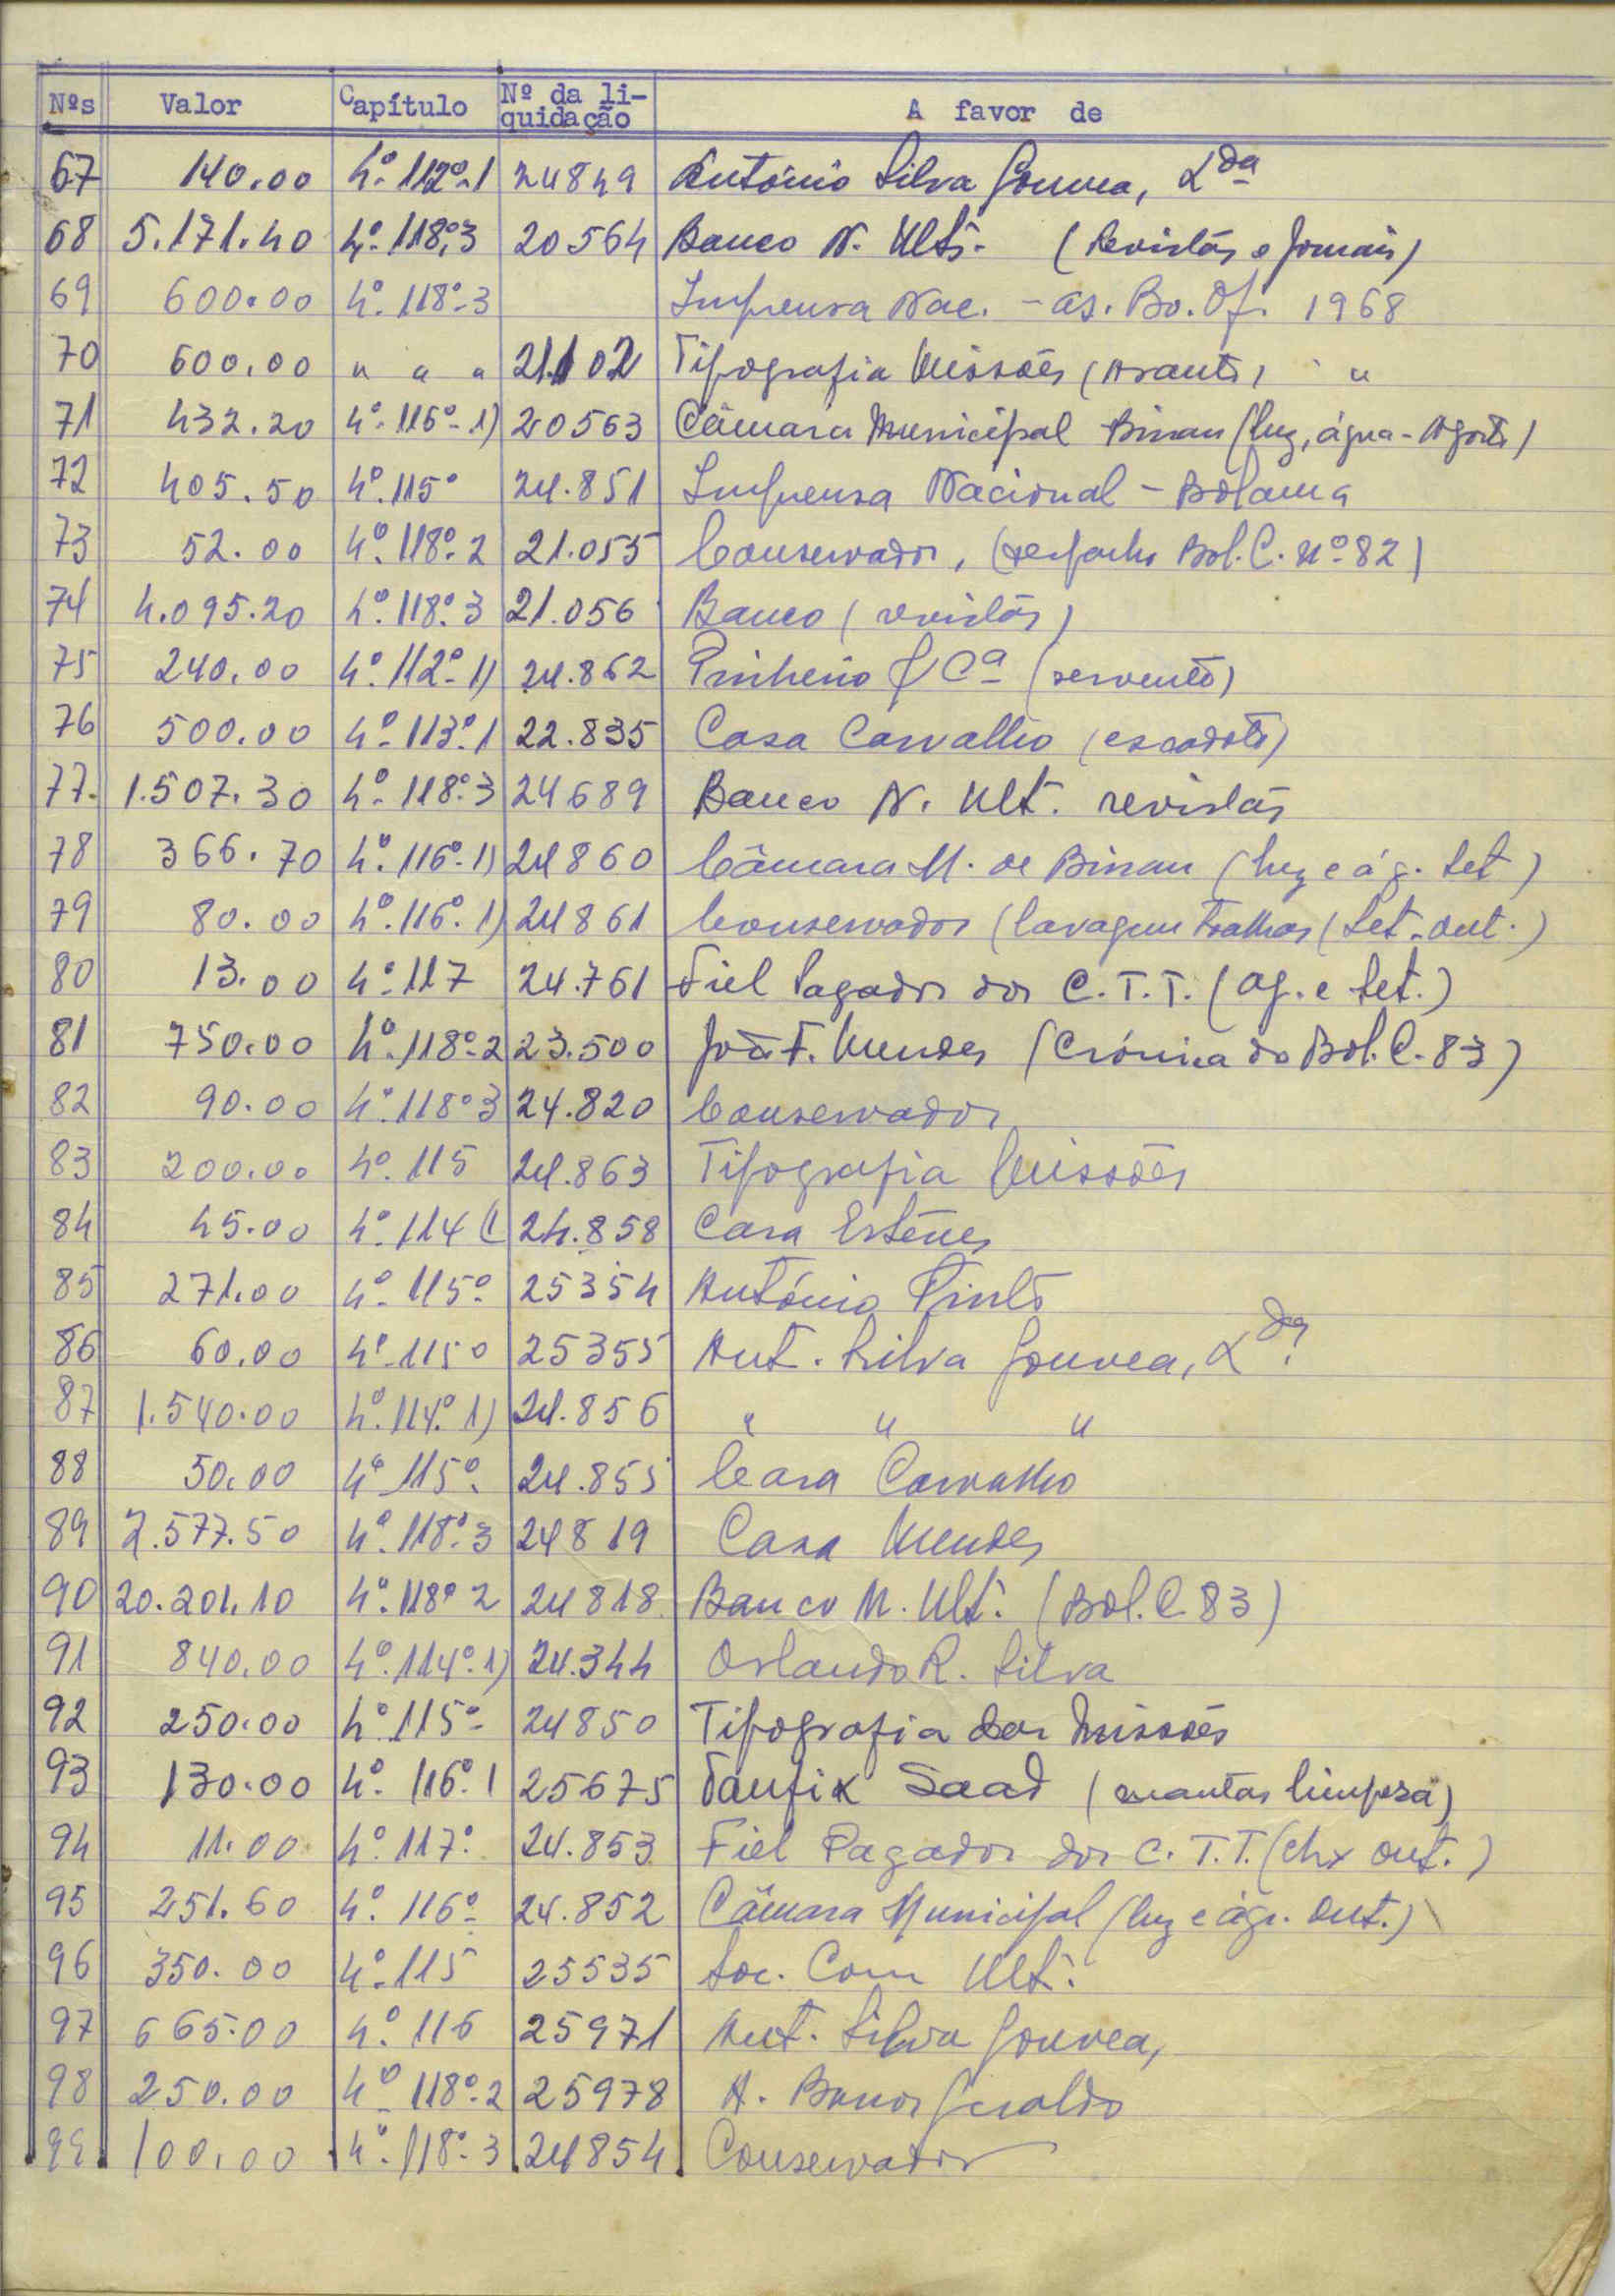 Nºs Valor Capítulo Nº da liquidação A favor de
67 140.00 4º-112º-1 24849 António Silva Gouvea, Lda
68 5.171.40 4º.118º.3 20564 Banco N. Ultº. (Revistas e Jornais)
69 600.00 4º.118º-3 Imprensa Nac. - as. Bo. Of. 1968
70 600.00 " " " 21.102 Tipografia Missões (Arauto) "
71 432.20 4º.116º-1) 20563 Câmara Municipal Bissau (luz, água - Agosto)
72 405.50 4º.115º 24.851 Imprensa Nacional - Bolama
73 52.00 4º.118º.2 21.055 Conservador, (despacho Bol. C. nº 82)
74 4.095.20 4º.118º.3 21.056 Banco (revistas)
75 240.00 4º.112º-1) 24.862 Pinheiro & Cª (servente)
76 500.00 4º-113º.1 22.835 Casa Carvalho (escadote)
77. 1.507.30 4º-118º.3 24689 Banco N. Ult. revistas
78 366.70 4º.116º-1) 24860 Câmara M. de Bissau (luz e ág. Set)
79 80.00 4º.116º.1) 24861 Conservador (lavagem toalhas (Set. out.)
80 13.00 4º-117 24.761 Fiel Pagador dos C.T.T. (ag. e Set.)
81 750.00 4º.118º-2 23.500 João F. Mendes (Crónica do Bol. C. 83)
82 90.00 4º.118º3 24.820 Conservador
83 200.00 4º.115 24.863 Tipografia Missões
84 45.00 4º.114 (1 24.858 Casa Esteves
85 271.00 4º-115º 25354 António Pinto
86 60.00 4º-115º 25355 Ant. Silva Gouvea, Lda.
87 1.540.00 4º.114º.1) 24.856 " " "
88 50.00 4º-115º. 24.855 Casa Carvalho
89 2.577.50 4º.118º.3 24819 Casa Mendes
90 20.201.10 4º.118º 2 24818 Banco N. Ultº. (Bol. C. 83)
91 840.00 4º.114º.1) 24.344 Orlando R. Silva
92 250.00 4º.115º- 24850 Tipografia das Missões
93 130.00 4º. 116º.1 25675 Taufik Saad (mantas limpeza)
94 11.00 4º.117º. 24.853 Fiel Pagador dos C.T.T. (out.)
95 251.60 4º. 116º- 24.852 Câmara Municipal (luz e ág. Out.)
96 350.00 4º-115 25535 Soc. Com Ultª.
97 665.00 4º.116 25971 Ant. Silva Gouvea,
98 250.00 4º 118º-2 25978 A. Geraldo
99 100.00 4º.118º-3 24854 Conservador